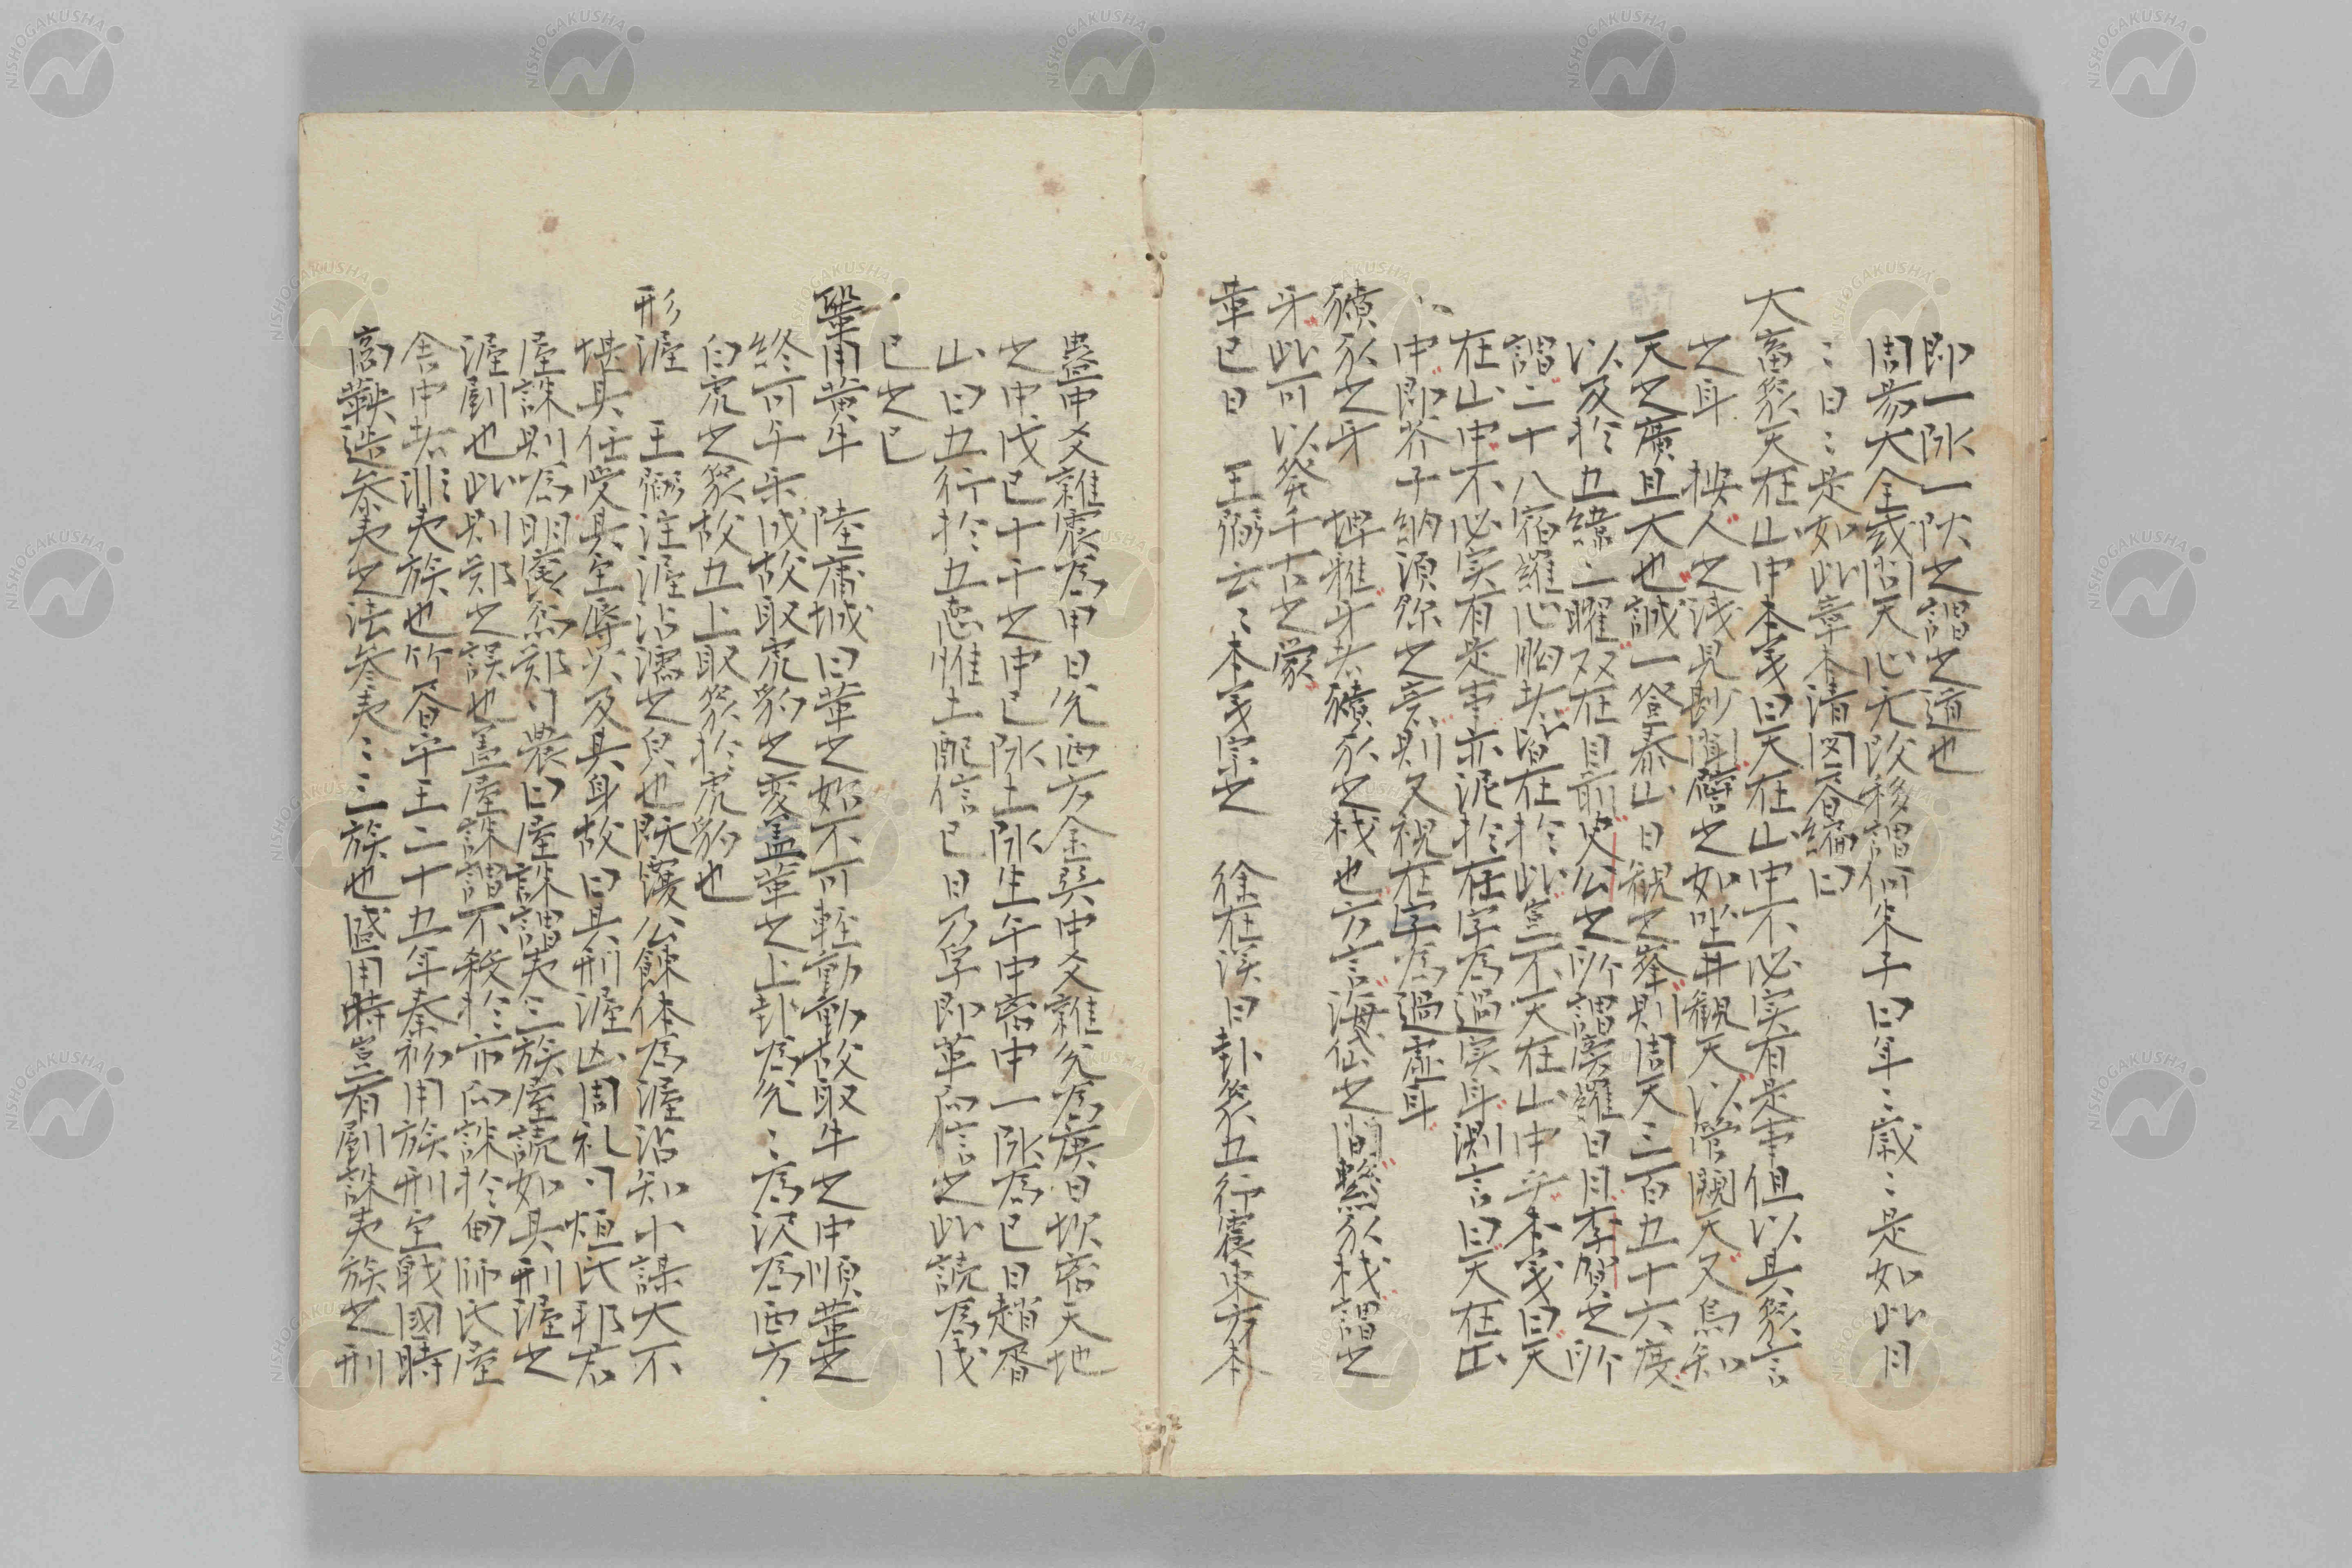 即一阴一阳之謂之道也
周易大全或問天心无改移謂何朱子曰年〻歳〻是如此月
〻日〻是如此章本清図書編曰
大畜象天在山中本義曰天在山中不必実有是事但以其象言
之耳 按人之浅見尠聞譬之如坐井観天以管闚天又烏知
天之廣且大也誠一登泰山日観之峯則周天三百五十六度
以及於五緯二曜双在目前史公之所謂旁羅日月李賀之所
謂二十八宿羅心胸者皆在於此豈不天在山中乎本義曰天
在山中不必実有是事亦泥於在字為過実耳測言曰天在山
中即芥子納須弥之意則又視在字為過虚耳
豶豕之牙 埤雅牙者豶豕之杙也方言海岱之間繫豕杙謂之
牙此可以発千古之蒙
革已日 王弼云〻本義宗之 徐在漢曰卦象五行震東方木
蠱中爻離震為甲日兌西方金巽中爻離兌為庚日坎宿天地
之中戊已十干之中已阴土阴生午中宿中一阴為已日趙胥
山曰五行於五悳惟土配信已日乃孚即革而信之此読為戊
已之已
鞏用黄牛 陸庸城曰革之始不可軽動動故取牛之中順革之
終可乎乐成故取虎豹之変盖革之上卦為兌〻為沢為西方
白虎之象故五上取象於虎豹也
形渥 王弼注渥沾濡之皃也既覆公餗体為渥沾知小謀大不
堪其任受其至辱災及其身故曰其刑渥凶周礼司烜氏邦若
屋誅則為明竁焉鄭司農曰屋誅謂夷三族屋読如其刑渥之
渥劓也此則鄭之誤也盖屋誅謂不殺於市而誅於甸師氏屋
舎中者非夷族也竹書平王二十五年秦初用族刑至戦國時
商鞅造参夷之法参夷〻三族也盛周時豈有劓誅夷族之刑